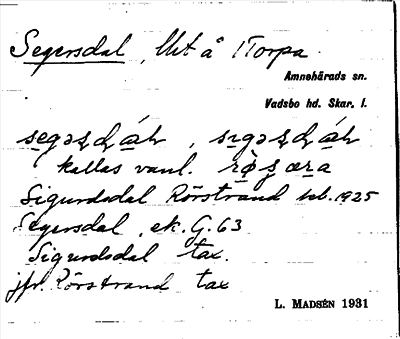 Segersdal, lht å Torpa
Amnehärads sn.
Vadsbo hd. Skar. l.
kallas vanl.
Sigurdsdal Rörstrand jrb. 1925
Segersdal, ek. G. 63
Sigurdsdal tax.
jfr. Rörstrand tax
L. MADSÉN 1931